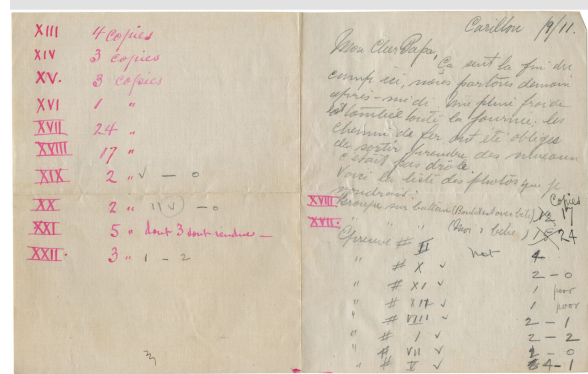 XIII 4 Copies
XIV 3 copies
XV. 3 Copies
XVI 1 "
XVII 24 "
XVIII 17 "
XIX 2 " √ – 0
XX 2 " 11 √ – 0
XXI 5 " dont 3 sont rendues –
XXII. 3 " 1 – 2
3
Carillon 19/11.
Mon Cher Papa,
Ça sent la fin du
camp ici, nous partons demain
après-midi. Une pluie froide
est tombée toute la journée. les
chemin de fer ont été obligés
de sortir prendre des
c'était pas drôle.
Voici la liste des photos que je
voudrais: Copies
XVIII Groupe sur bateau 17
XVII. " " " 24
Epreuve # II not 4
" # X √ 2 – 0
" # XI √ 1 poor
" # XII √ 1 poor
" # VIII √ 2 – 1
" # I √ 2 – 2
" # VII √ – 0
" # V √ 4 – 1